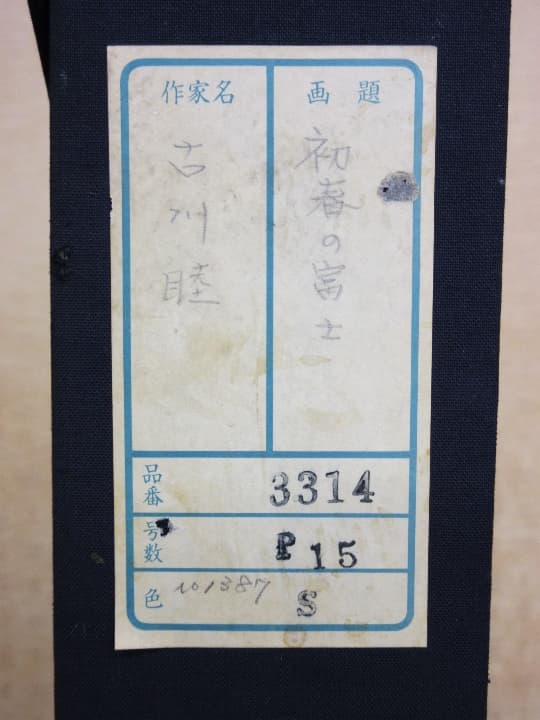 画題
初春の富士
作家名
古川睦
品番 3314
号数 P15
色 101387 S